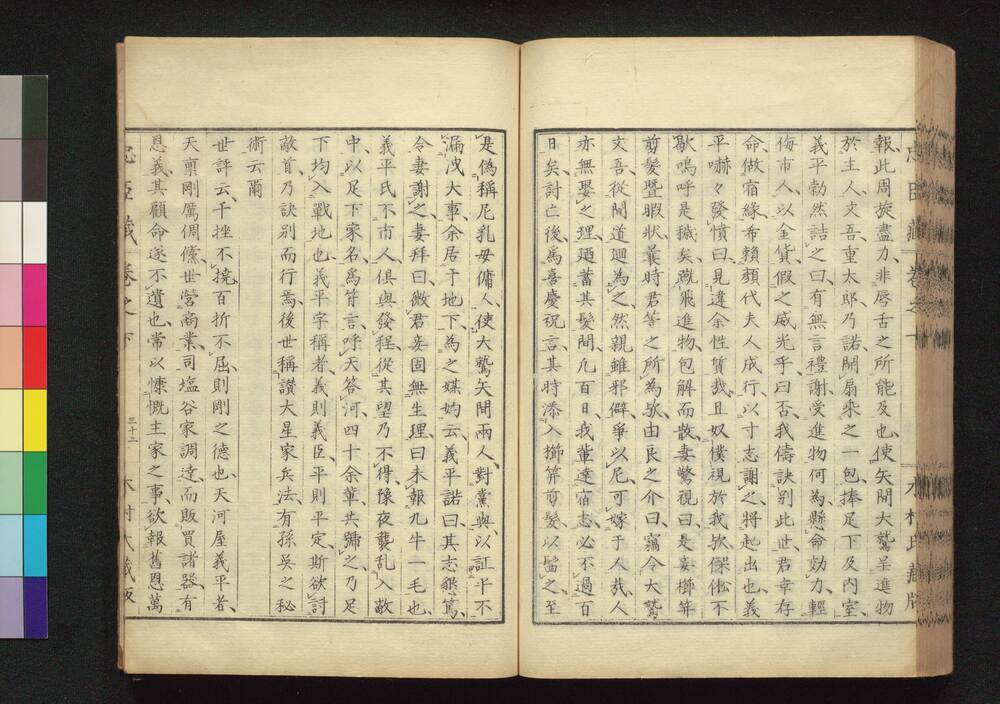 報此周旋盡力非唇舌之所能及也使矢間大鷲呈進物
於主人丈吾重太郎乃諾開扇來之一包捧足下及内室
義平勃然詰之曰有無言禮謝受進物何為懸命効力輕
侮市人以金貨假之威光乎曰否我儔訣別此世君幸存
命做宿緣布賴顏代夫人成行以寸志謝之將起出也義
平嚇々發憤曰見違余性質哉且奴僕視於我欤傑𠈓不
歇嗚呼是穢矣蹴飛進物包解而散妻驚視曰是妾櫛笄
剪髮暨暇狀曩時君等之所為欤由良之介曰竊令大鷲
文吾從間道廻為之然親雖邪僻爭以尼可嫁于人哉人
亦無娶之理廼蓄其髮間凡百日我輩達宿志必不過百
日矣討亡後為喜慶祝言其時添入櫛笄剪髮以髷之至
是偽稱尼乳母傭人使大鷲矢間兩人對黨與以証平不
漏洩大事余居于地下為之媒妁云義平諾曰其志懇篤
令妻謝之妻拜曰微君妾固無生理曰未報九牛一毛也
義平氏不市人俱與發程從其望乃不得豫夜襲亂入敵
中以足下家名爲符言呼天答河四十余輩共號之乃足
下均入戰地也義平字稱者義則義臣平則平定斯欲討
敵首乃訣別而行焉後世稱讃大星家兵法有孫吳之秘
術云爾
世評云千挫不撓百折不屈則剛之德也天河屋義平者
天稟剛厲倜儻世營商業司塩谷家調達而販買諸器有
恩義其顧命遂不遺也常以慷慨主家之事欲報舊恩萬
忠臣藏 卷之下 三十二 木村氏藏版